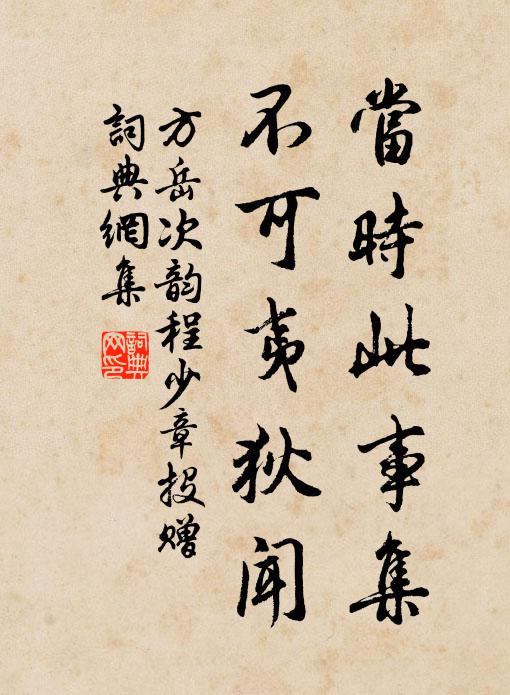 當時此事集
不可夷狄聞
方岳次韵程少章投赠
詞典網集
詞典
网印